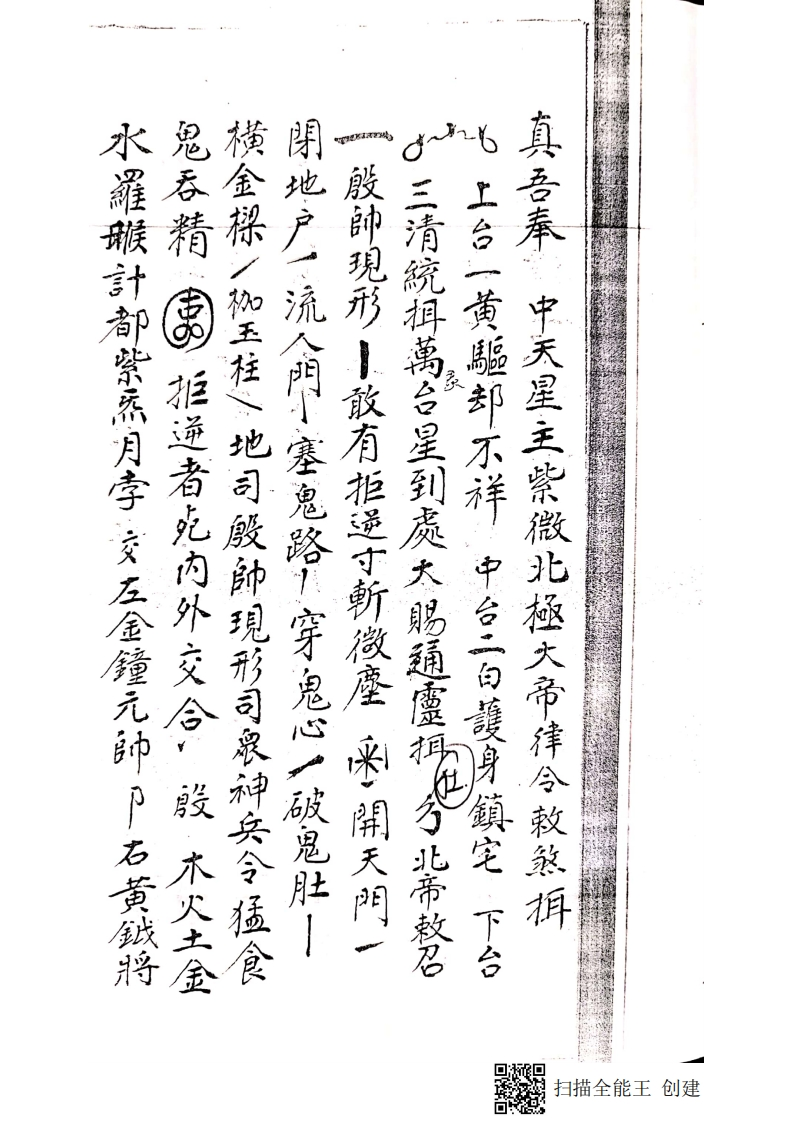 真吾奉 中天星主紫微北極大帝律令敕煞揖
上台一黄驅却不祥 中台二白護身鎮宅 下台
三清統揖萬灵台星到處大賜通靈揖 北帝敕召
一殷帥現形丨敢有拒逆寸斬微塵 開天門一
閉地户丶流人門丶塞鬼路丨穿鬼心丶破鬼肚丨
横金樑丿枷玉柱乀地司殷帥現形司眾神兵令猛食
鬼吞精 拒逆者死内外交合 殷 木火土金
水羅睺計都紫炁月孛交左金鐘元帥卩右黄鉞將
扫描全能王 创建